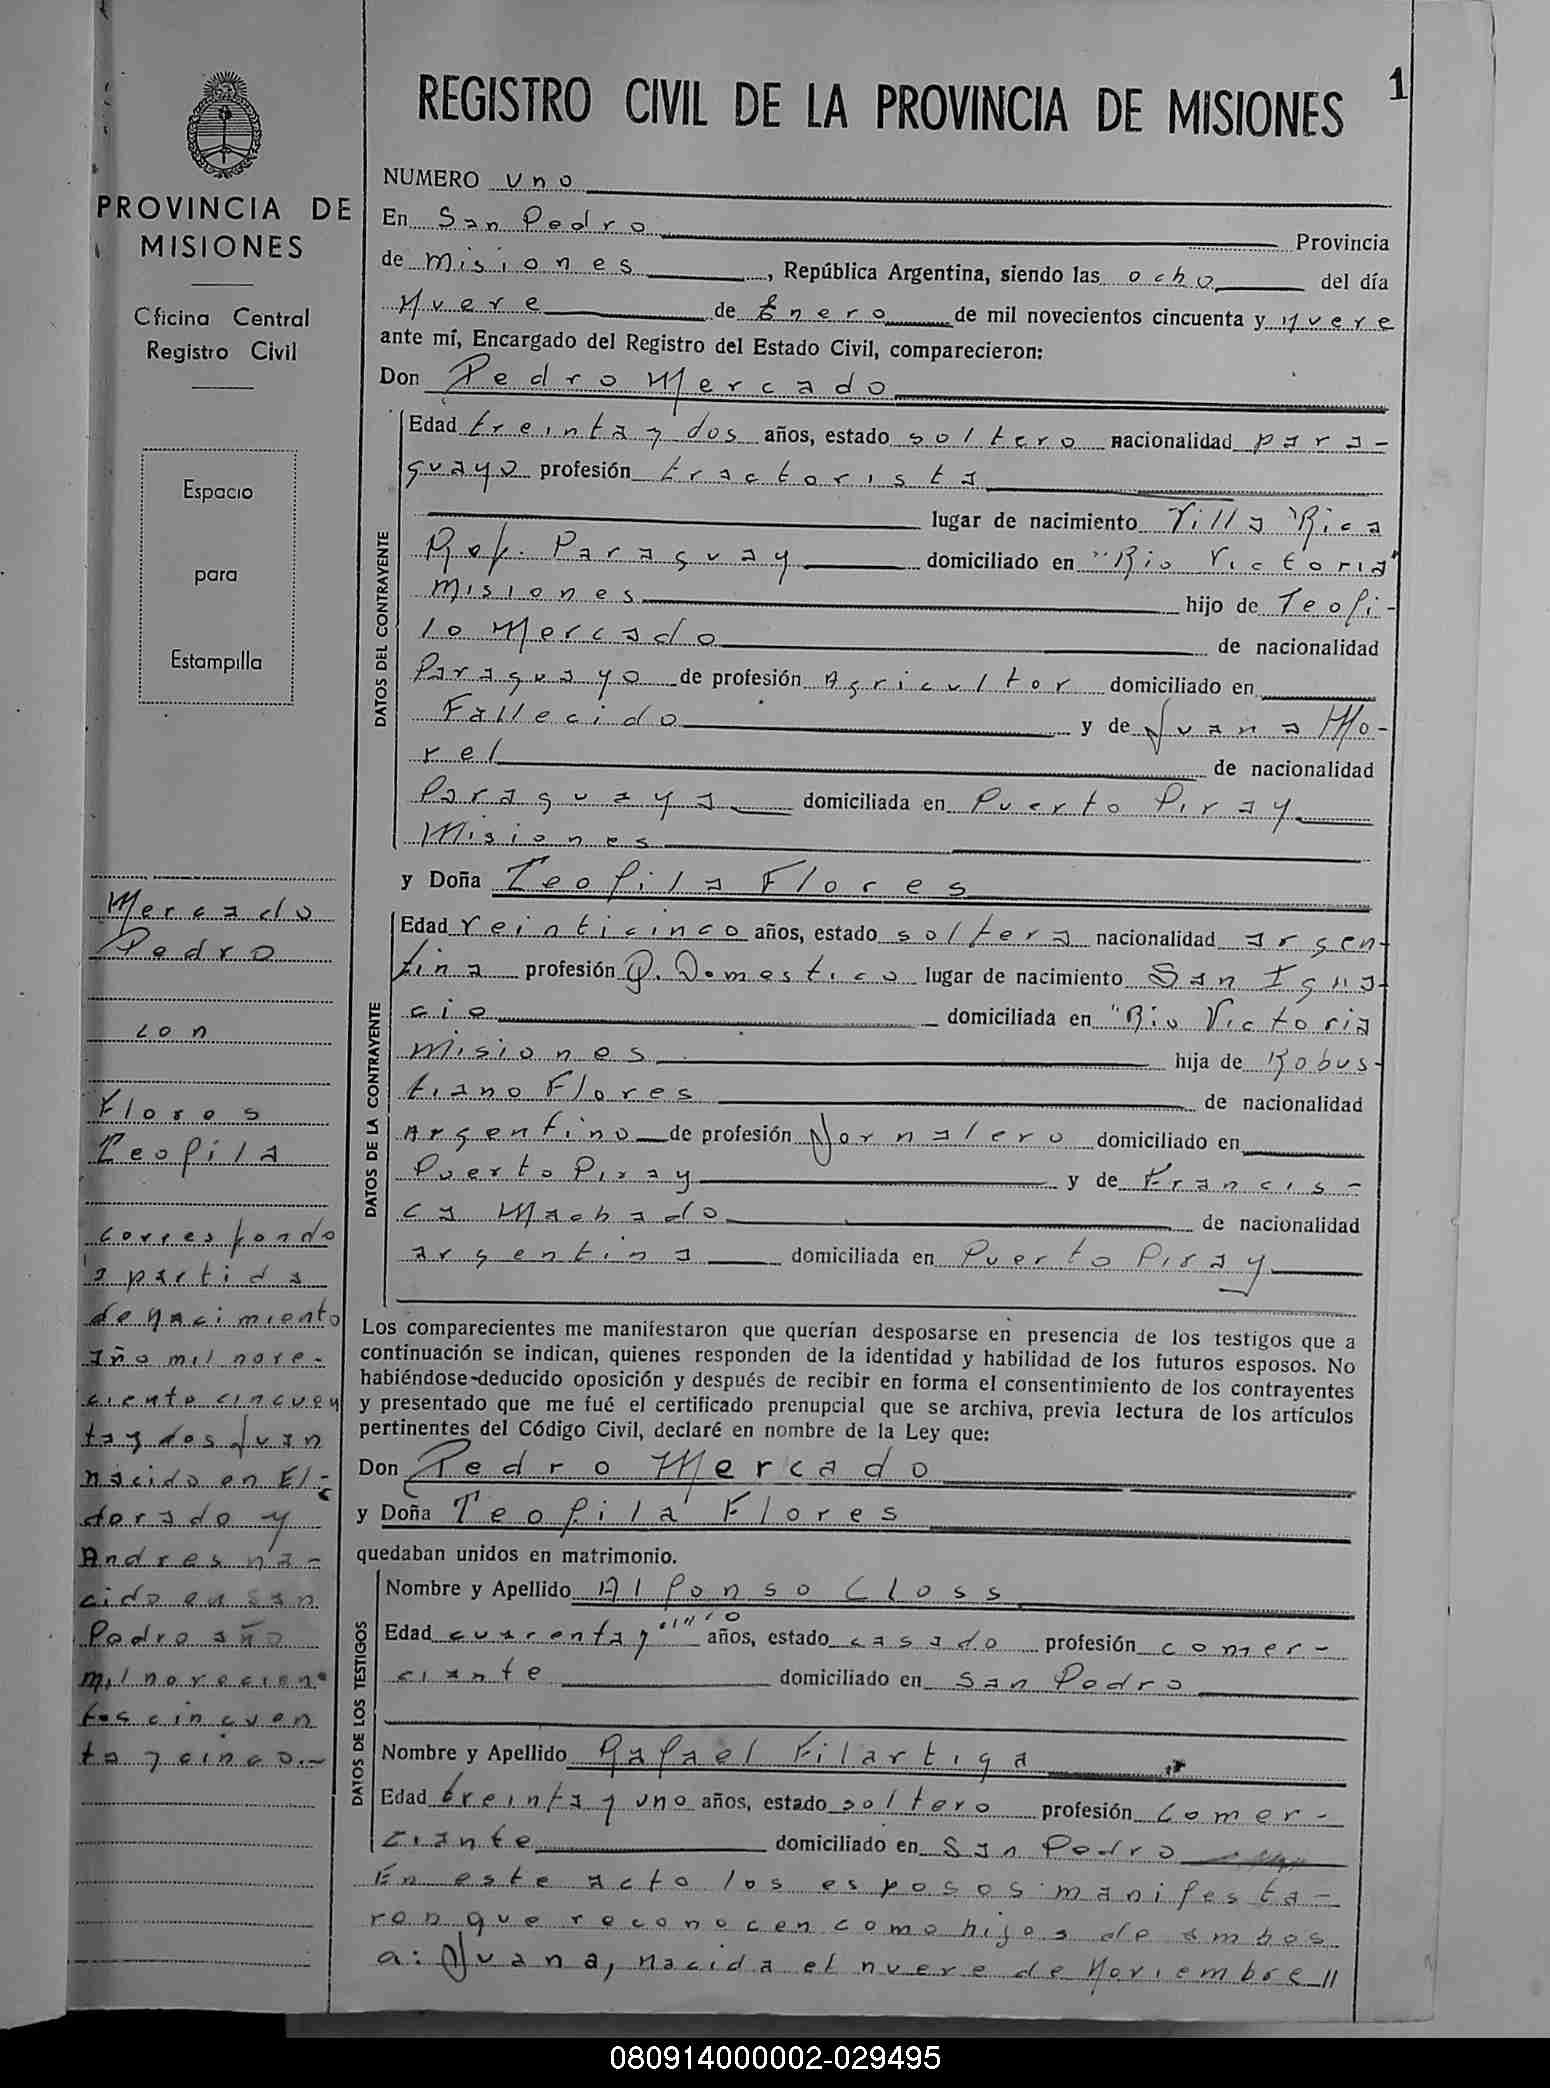 REGISTRO CIVIL DE LA PROVINCIA DE MISIONES
1
PROVINCIA DE
MISIONES
Oficina Central
Registro Civil
Espacio
para
Estampilla
Mercado
Pedro
con
Flores
Teofila
corresponde
a partida
de nacimiento
año mil nove-
ciento cincuen
ta y dos Juan
nacido en El-
dorado y
Andres na-
cido en San
Pedro año
mil novecien
tos cincuen
ta y cinco.-
NUMERO uno
En San Pedro Provincia
de Misiones, República Argentina, siendo las ocho del día
Nueve de Enero de mil novecientos cincuenta y Nueve
ante mí, Encargado del Registro del Estado Civil, comparecieron:
Don Pedro Mercado
DATOS DEL CONTRAYENTE
Edad treinta y dos años, estado soltero nacionalidad para-
guayo profesión tractorista
lugar de nacimiento Villa Rica
Rep. Paraguay domiciliado en "Rio Victoria"
Misiones hijo de Teofi-
lo Mercado de nacionalidad
Paraguayo de profesión Agricultor domiciliado en
Fallecido y de Juana Mo-
rel de nacionalidad
Paraguaya domiciliada en Puerto Piray
Misiones
y Doña Teofila Flores
DATOS DE LA CONTRAYENTE
Edad veinticinco años, estado soltera nacionalidad argen-
tina profesión Q. Domestico lugar de nacimiento San Igna-
cio domiciliada en "Rio Victoria
Misiones hija de Robus-
tiano Flores de nacionalidad
Argentino de profesión Jornalero domiciliado en
Puerto Piray y de Francis-
ca Machado de nacionalidad
argentina domiciliada en Puerto Piray
Los comparecientes me manifestaron que querían desposarse en presencia de los testigos que a
continuación se indican, quienes responden de la identidad y habilidad de los futuros esposos. No
habiéndose deducido oposición y después de recibir en forma el consentimiento de los contrayentes
y presentado que me fué el certificado prenupcial que se archiva, previa lectura de los artículos
pertinentes del Código Civil, declaré en nombre de la Ley que:
Don Pedro Mercado
y Doña Teofila Flores
quedaban unidos en matrimonio.
DATOS DE LOS TESTIGOS
Nombre y Apellido Alfonso Closs
Edad cuarenta y años, estado casado profesión comer-
ciante domiciliado en San Pedro
Nombre y Apellido Rafael Filartiga
Edad treinta y uno años, estado soltero profesión Comer-
ciante domiciliado en San Pedro
En este acto los esposos manifesta-
ron que reconocen como hijos de ambos
a: Juana, nacida el nueve de Noviembre //
080914000002-029495